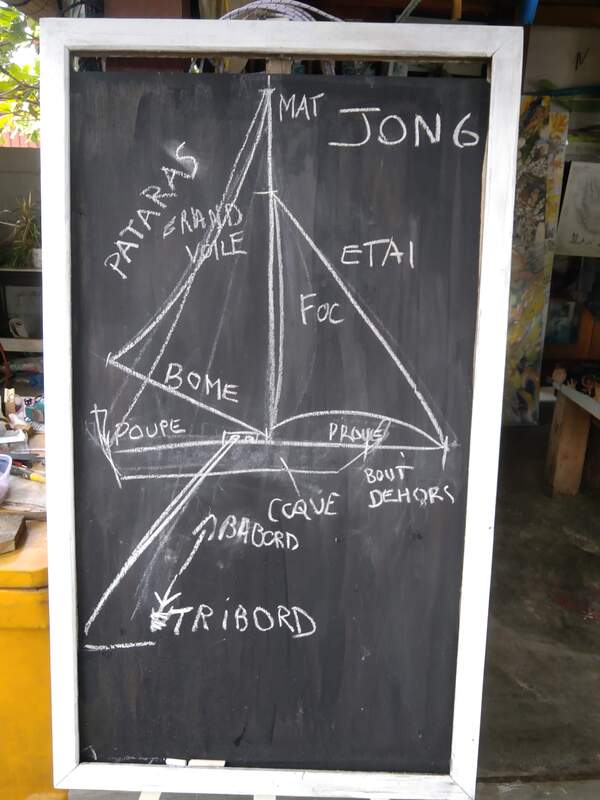 MAT
JONG
PATARAS
GRAND
VOILE
ETAI
FOC
BOME
POUPE
PROUE
BOUT
DEHORS
COQUE
BABORD
TRIBORD